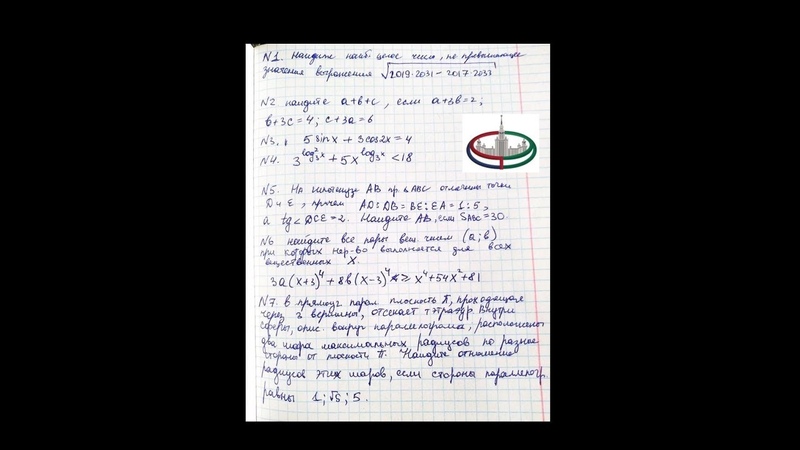 N1. Найдите наиб. целое число, не превышающее
значения выражения √2019·2031 − 2017·2033
N2 найдите a+b+c, если a+3b=2;
b+3c=4; c+3a=6
N3. 5 sinx + 3cos2x = 4
N4. 3^log₃²x + 5x^log₃x < 18
N5. На гипотенузе AB пр. Δ ABC отмечены точки
D и E, причем AD:DB = BE:EA = 1:5,
а tg∠DCE = 2. Найдите AB, если SABC = 30.
N6 найдите все пары вещ. чисел (a;b)
при которых нер-во выполняется для всех
вещественных X.
3a(x+3)⁴ + 8b(x−3)⁴ ≥ x⁴+54x²+81
N7. В прямоуг парал. плоскость П, проходящая
через 3 вершины, отсекает тэтраэдр. Внутри
сферы, опис. вокруг параллелограма, расположены
два шара максимальных радиусов по разные
стороны от плоскости П. Найдите отношение
радиусов этих шаров, если стороны параллелогр.
равны 1; √5; 5.